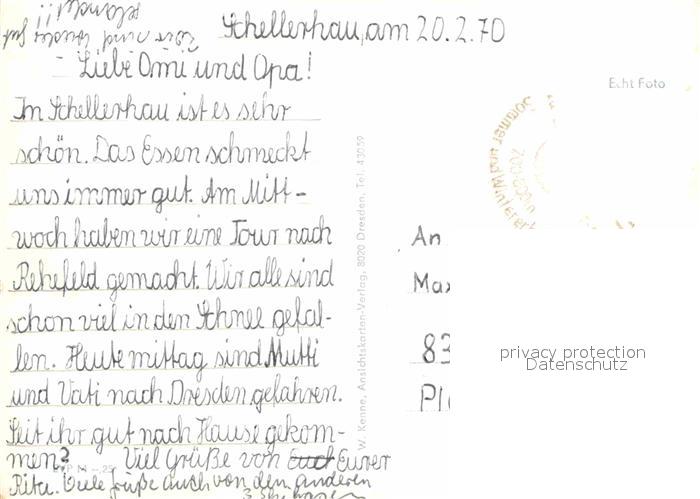 Schellerhau, am 20.2.70
Liebe Omi und Opa!
In Schellerhau ist es sehr
schön. Das Essen schmeckt
uns immer gut. Am Mitt-
woch haben wir eine Tour nach
Rehefeld gemacht. Wir alle sind
schon viel in den Schnee gefal-
len. Heute mittag sind Mutti
und Vati nach Dresden gefahren.
Seit ihr gut nach Hause gekom-
men? Viel Grüße von Euch Eurer
Rita. Viele Grüße auch von den anderen
Wir sind wieder gut
gelandet!!!
Echt Foto
Sommer und Winter
W. Kenne, Ansichtskarten-Verlag, 8020 Dresden, Tel. 43059
An
Max
83
privacy protection
Datenschutz